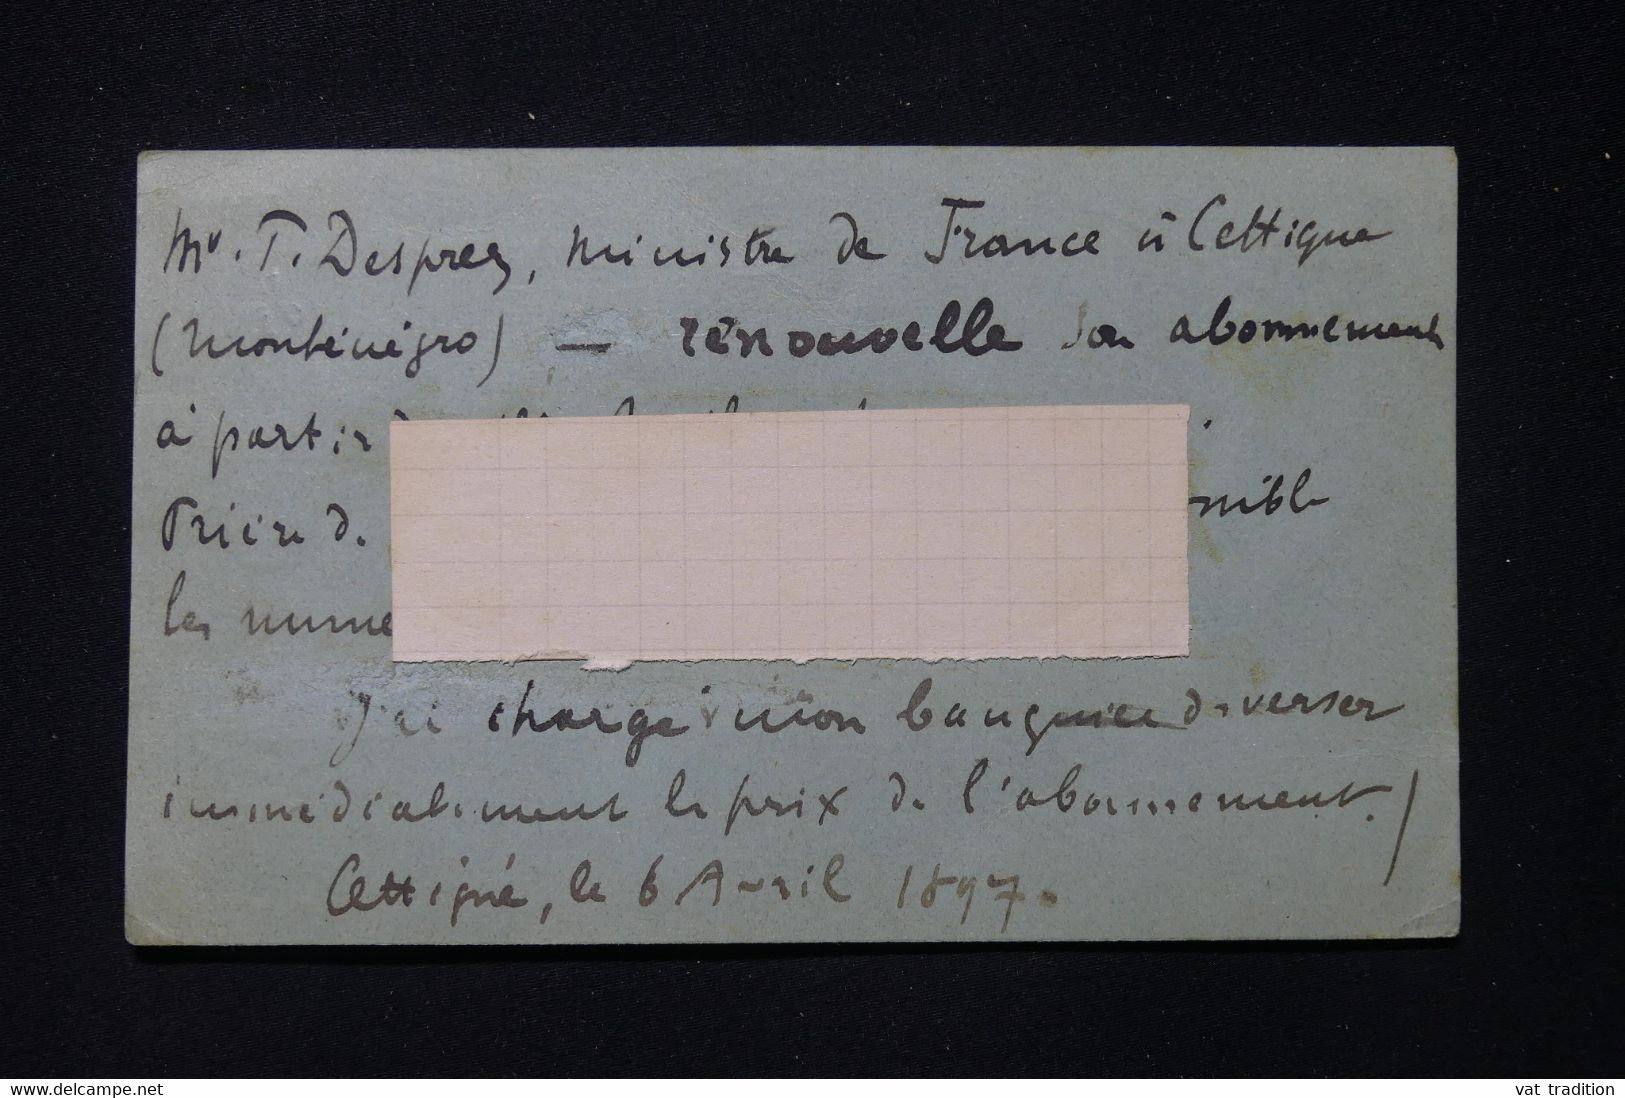 Mr. T. Desprez, ministre de France à Cettigne
(Monténégro) — rénouvelle son abonnement
à partir d
Prière de nible
les numé
J'ai chargé mon banquier de verser
immédiatement le prix de l'abonnement./
Cettigné, le 6 Avril 1897.
www.delcampe.net
vat_tradition